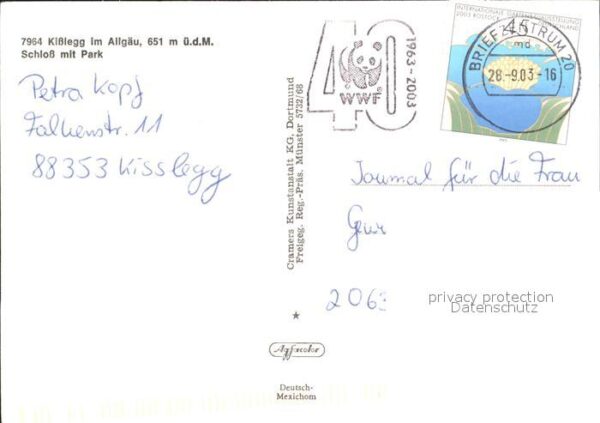 7964 Kißlegg im Allgäu, 651 m ü.d.M.
Schloß mit Park
Petra Kopf
Falkenstr. 11
88353 Kisslegg
Cramers Kunstanstalt KG, Dortmund
Freigeg. Reg.-Präs. Münster 5732/68
40
WWF
1963 - 2003
INTERNATIONALE GARTENBAUAUSSTELLUNG
2003 ROSTOCK
45
BRIEFZENTRUM 20
md
28.-9.03-16
Journal für die Frau
2063
privacy protection
Datenschutz
Agfacolor
Deutsch-
Mexichom